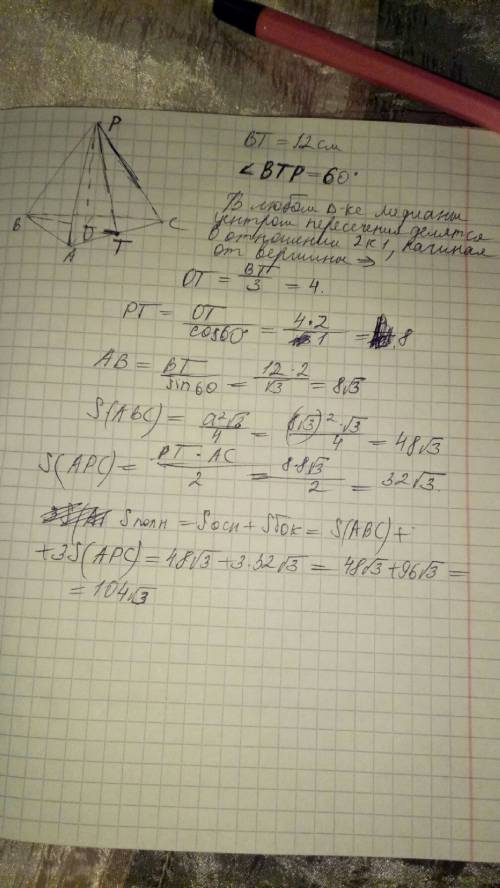 P
B
O
C
A
T
BT = 12 см
∠BTP = 60°
В любом Δ-ке медианы
центром пересечения делятся
в отношении 2 к 1, начиная
от вершины ⇒
OT = BT/3 = 4.
PT = OT/cos60° = 4·2/1 = 8
AB = BT/sin60 = 12·2/√3 = 8√3
S(ABC) = a²√3/4 = (8√3)²·√3/4 = 48√3
S(APC) = PT·AC/2 = 8·8√3/2 = 32√3.
Sполн = Sосн + Sбок = S(ABC) +
+ 3S(APC) = 48√3 + 3·32√3 = 48√3 + 96√3 =
= 104√3